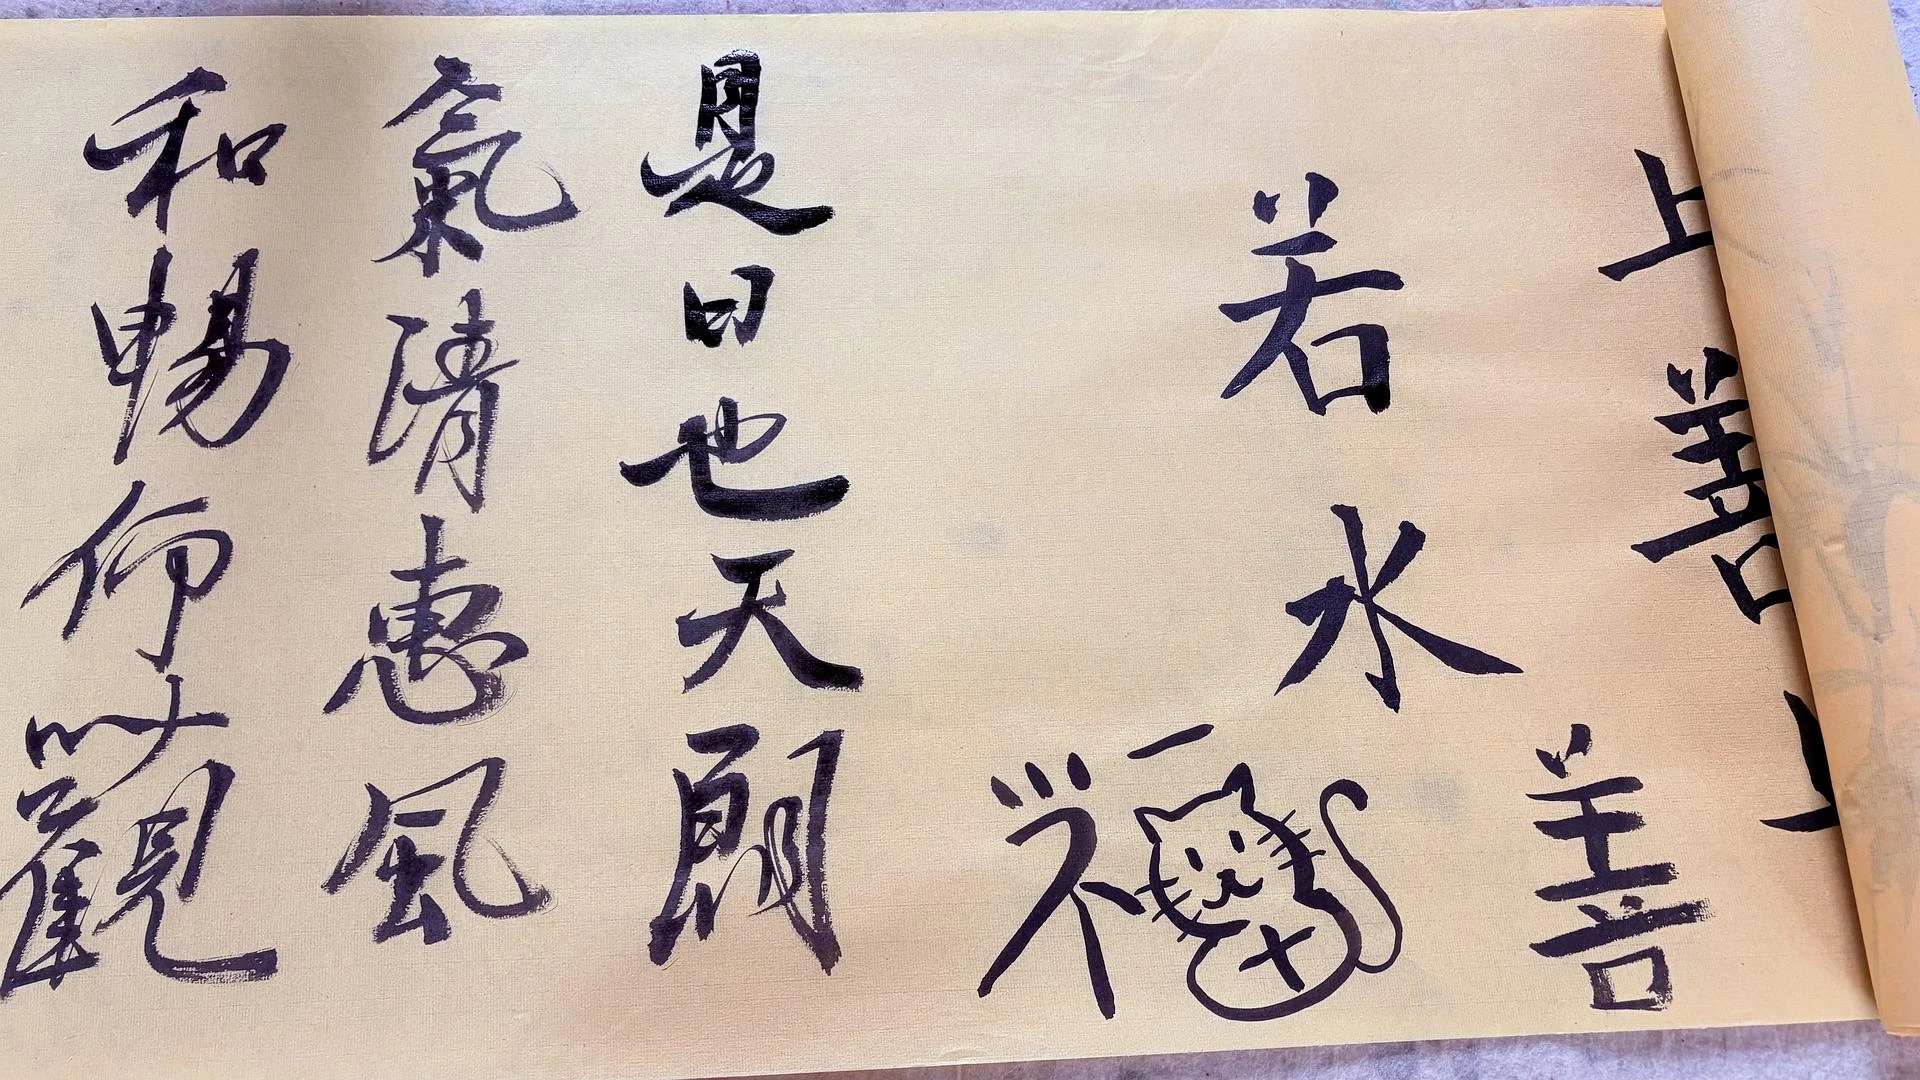 上善
善
若水
福
是日也天朗
氣清惠風
和暢仰觀